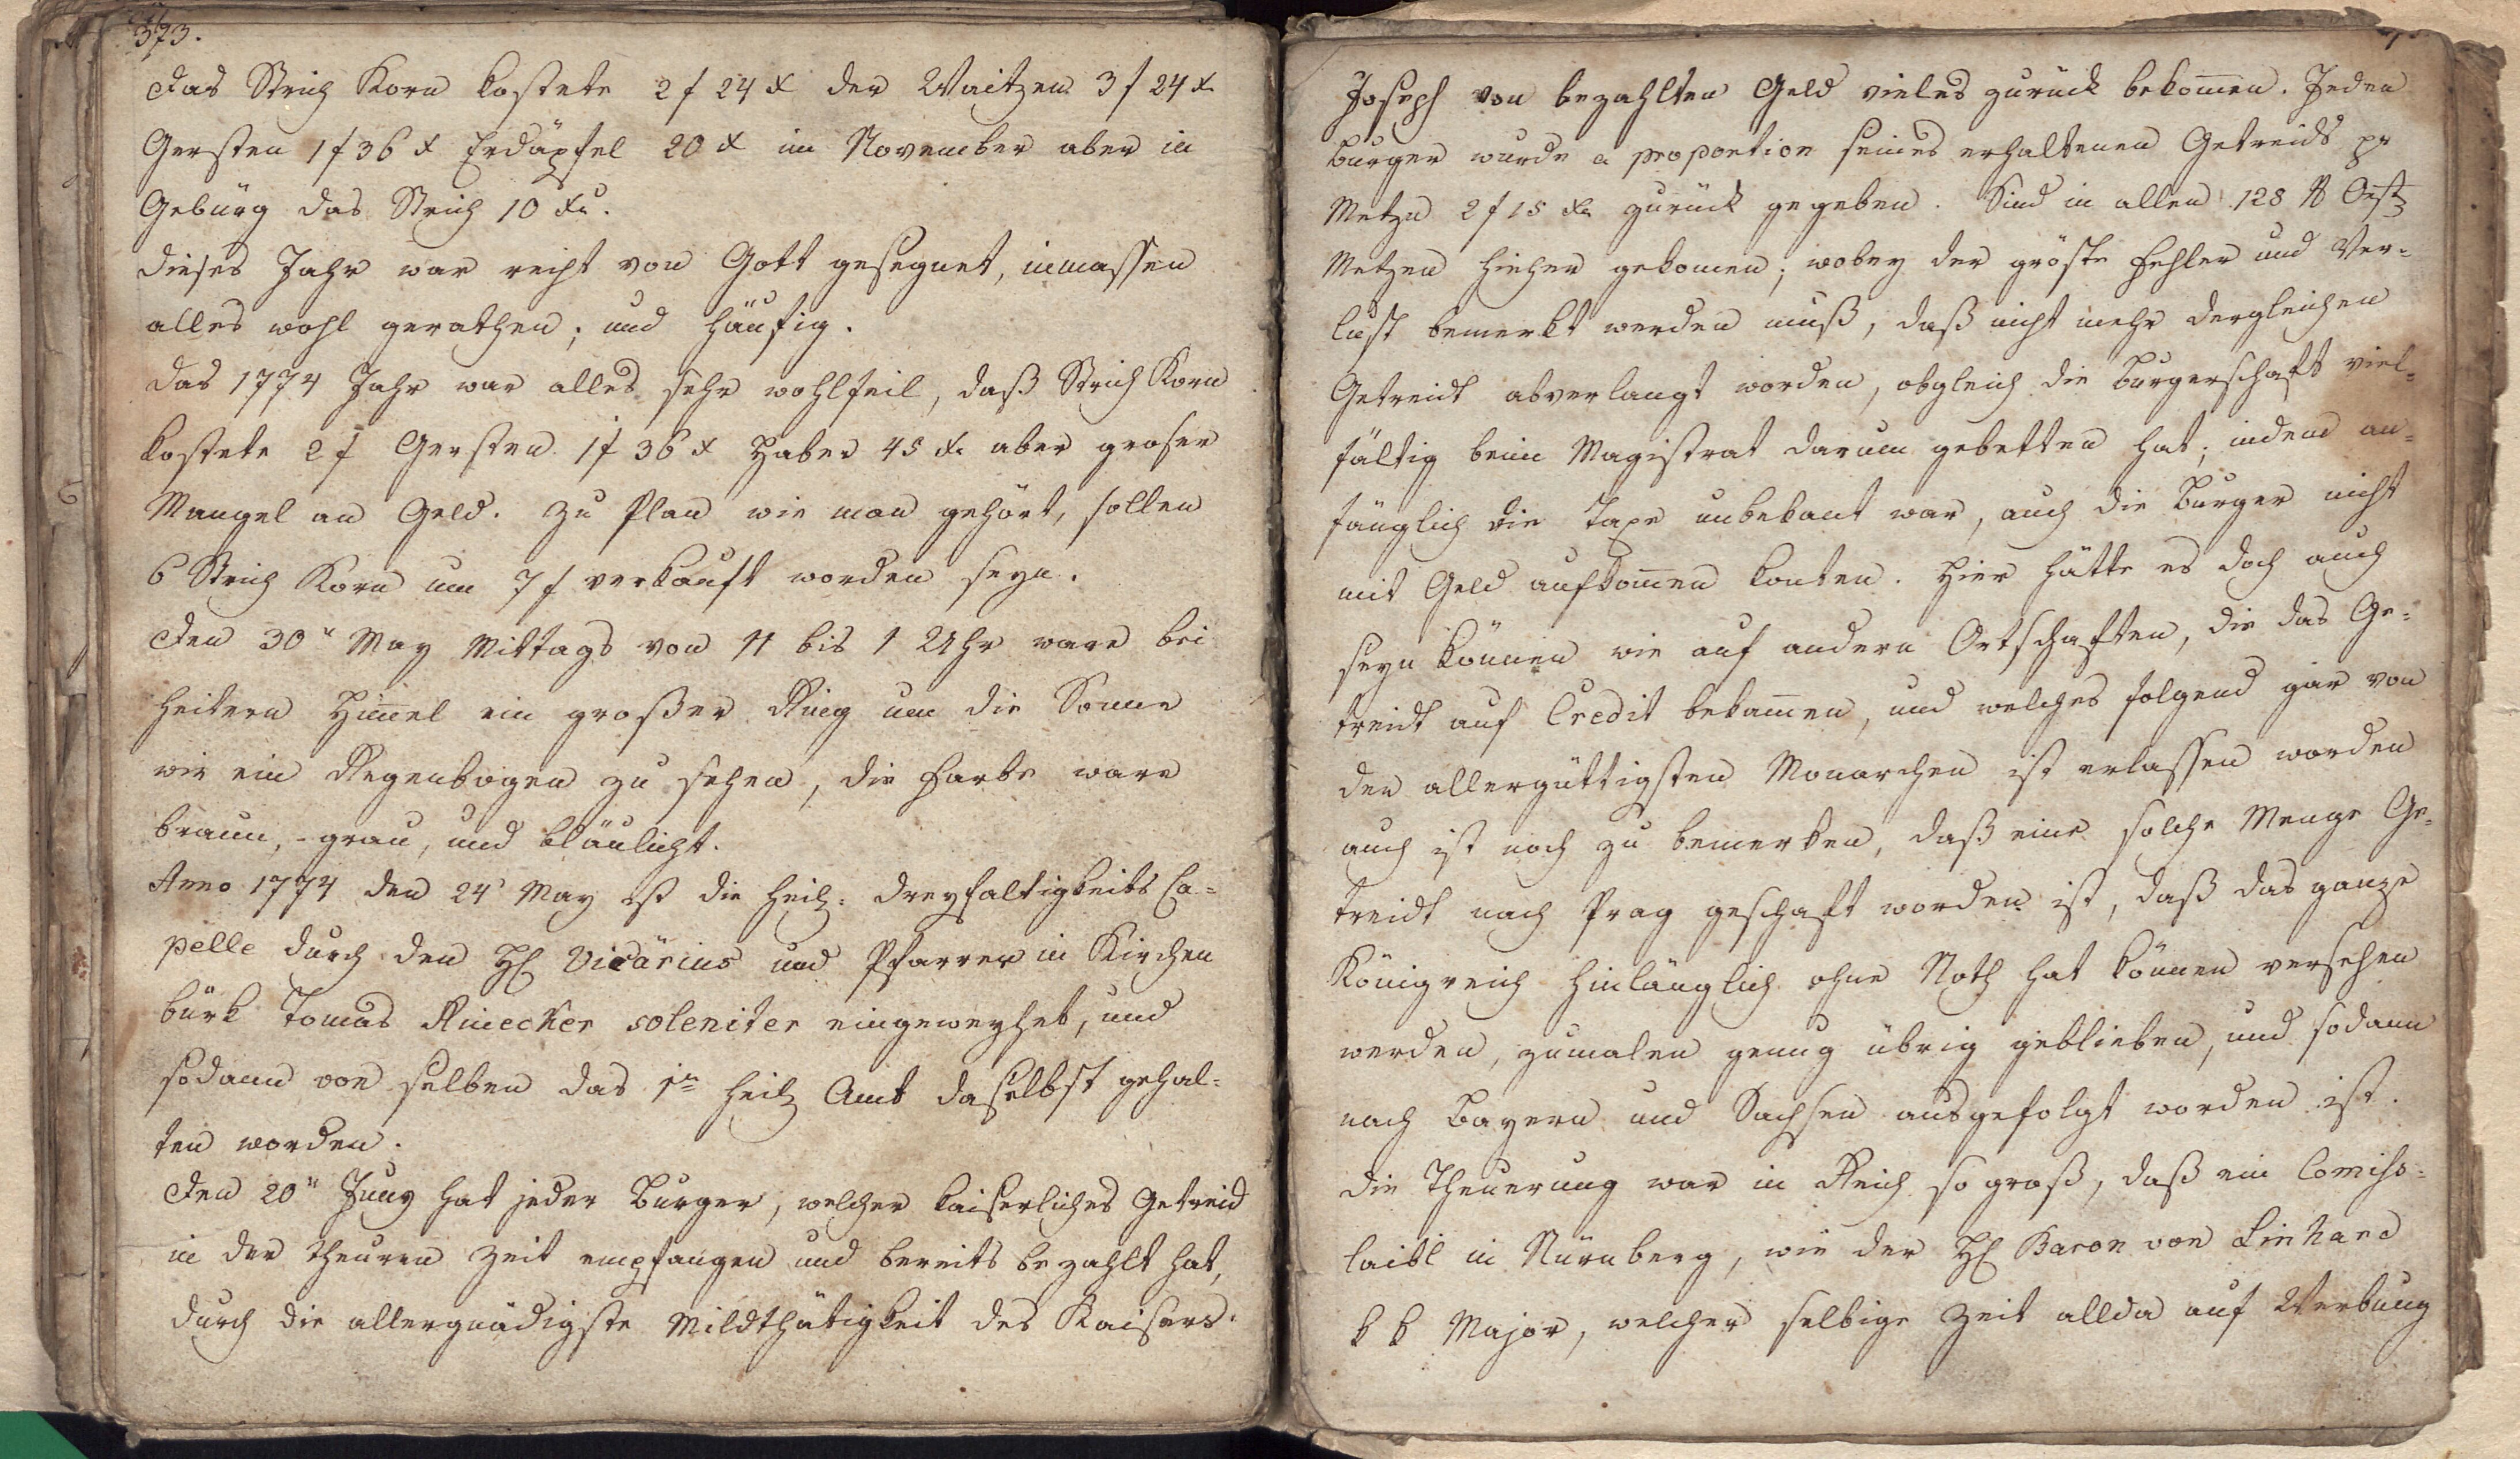 373.
Das Strich Korn kostete 2 f 24 x der Waitzen 3 f 24 x
Gersten 1 f 36 x Erdäpfel 20 x im November aber in
Gebürg das Strich 10 xr.
Dieses Jahr war recht von Gott gesegnet, inmassen
alles wohl gerathen; und häufig.
Das 1774 Jahr war alles sehr wohlfeil, daß Strich Korn
kostete 2 f Gersten 1 f 36 x Haber 45 x. aber groser
Mangel an Geld. Zu Plan wie man gehört, sollen
6 Strich Korn um 7 f verkauft worden seyn.
Den 30n May Mittags von 11 bis 1 Uhr ware bei
heitern Him̅el ein großer Ring um die Sonne
wie ein Regenbogen zu sehen, die Farbe ware
braun, grau, und bläulicht.
Anno 1774 den 24t May ist die heil: Dreyfaltigkeits Ca=
pelle durch den H Vicärius und Pfarrer in Kirchen
bürk Tomas Rinecker soleniter eingeweyhet, und
sodann von selben das 1te heil Amt daselbst gehal=
ten worden.
Den 20n Juny hat jeder Burger, welcher kaiserliches Getreid
in der theuren Zeit empfangen und bereits bezahlt hat,
durch die allergnädigste Mildthätigkeit des Kaisers.
Joseph von bezahlten Geld vieles zurück bekom̅en. Jeden
Burger wurde a proportion seines erhaltenen Getreids pr
Metzn 2 f 15 xr zurück gegeben. Sind in allen 128
Metzen hieher gekomen; wobey der gröste Fehler und Ver=
lust bemerkt werden muß, daß nicht mehr dergleichen
Getreidt abverlangt worden, obgleich die Burgerschaft viel=
fältig beim Magistrat darum gebetten hat; indem an=
fänglich die Taxe unbekant war, auch die Burger nicht
mit Geld aufkom̅en konten. Hier hätte es doch auch
seyn können wie auf andern Ortschaften, die das Ge=
treidt auf Credit bekam̅en, und welches folgend gar von
den allergüttigsten Monarchen ist erlassen worden
auch ist noch zu bemerken, daß eine solche Menge Ge=
treidt nach Prag geschaft worden ist, daß das ganze
Königreich hinlänglich ohne Noth hat können versehen
werden, zumalen genug übrig geblieben, und sodann
nach Bayern und Sachsen ausgefolgt worden ist.
die Theuerung war in Reich so groß, daß ein Comiss=
laibl in Nürnberg, wie der H Baron von Linhard
k k Major, welcher selbige Zeit allda auf Werbung